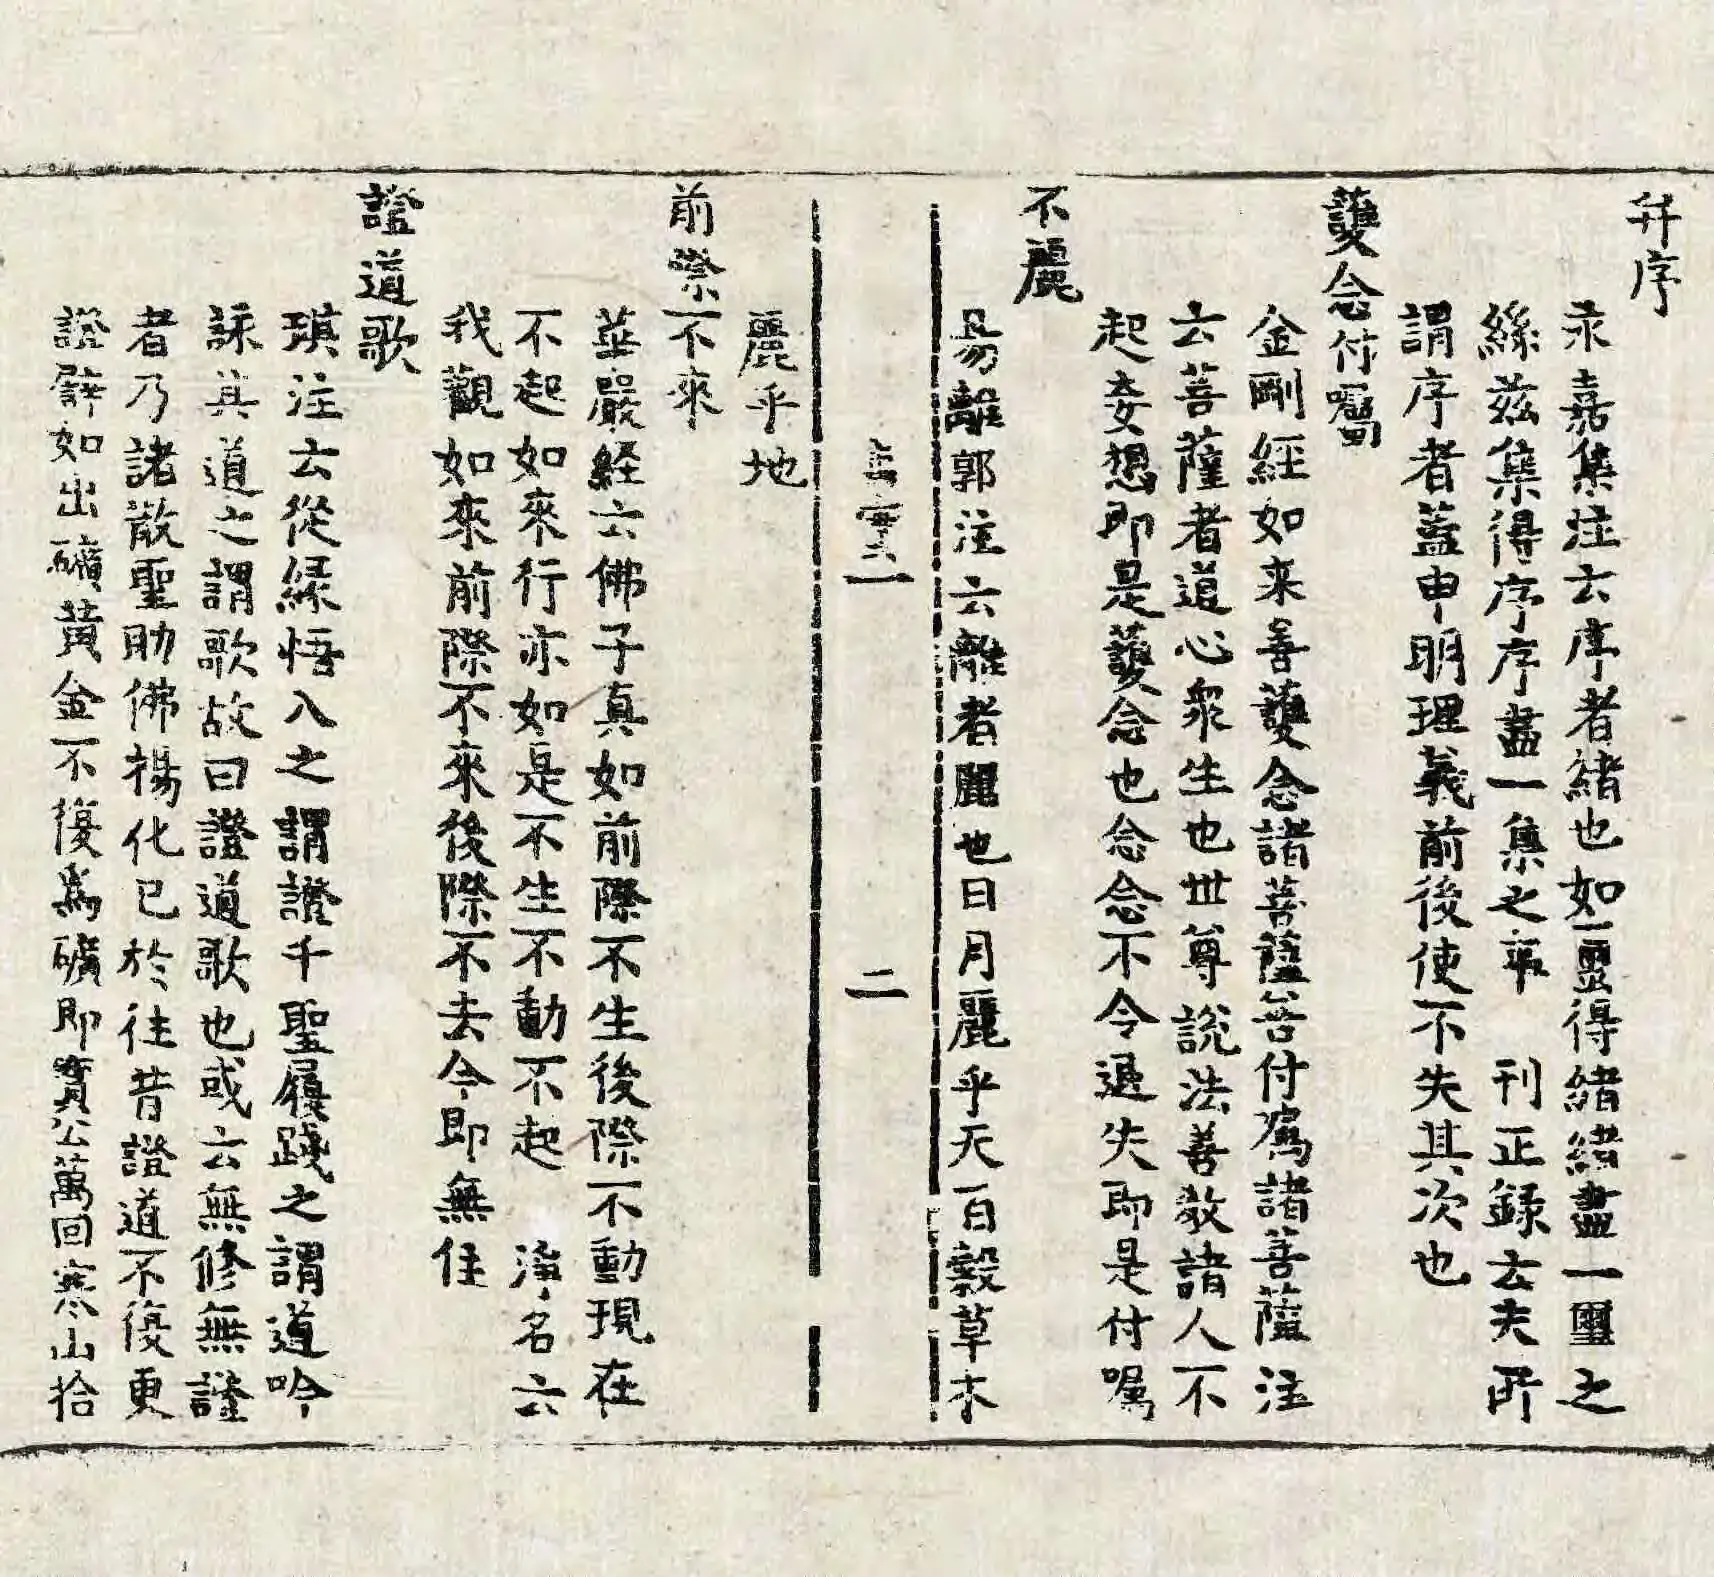 并序
永嘉集注云序者緒也如璽得緒緒盡一璽之
絲玆集得序序盡一集之事 刊正錄云夫所
謂序者蓋申明理義前後使不失其次也
䕶念付囑
金剛經如来善䕶念諸菩薩善付嘱諸菩薩注
云菩薩者道心衆生也世尊説法善教諸人不
起妄想即是䕶念也念念不令退失即是付嘱
不麗
易離郭注云離者麗也日月麗乎天百穀草木
二
麗乎地
前際不來
華嚴経云佛子真如前際不生後際不動現在
不起如來行亦如是不生不動不起 淨名云
我觀如來前際不來後際不去今即無住
證道歌
琪注云從緣悟入之謂證千聖履踐之謂道吟
詠其道之謂歌故曰證道歌也或云無修無證
者乃諸散聖助佛揚化已於往昔證道不復更
證辟如出礦黄金不復為礦即寶公萬回寒山拾